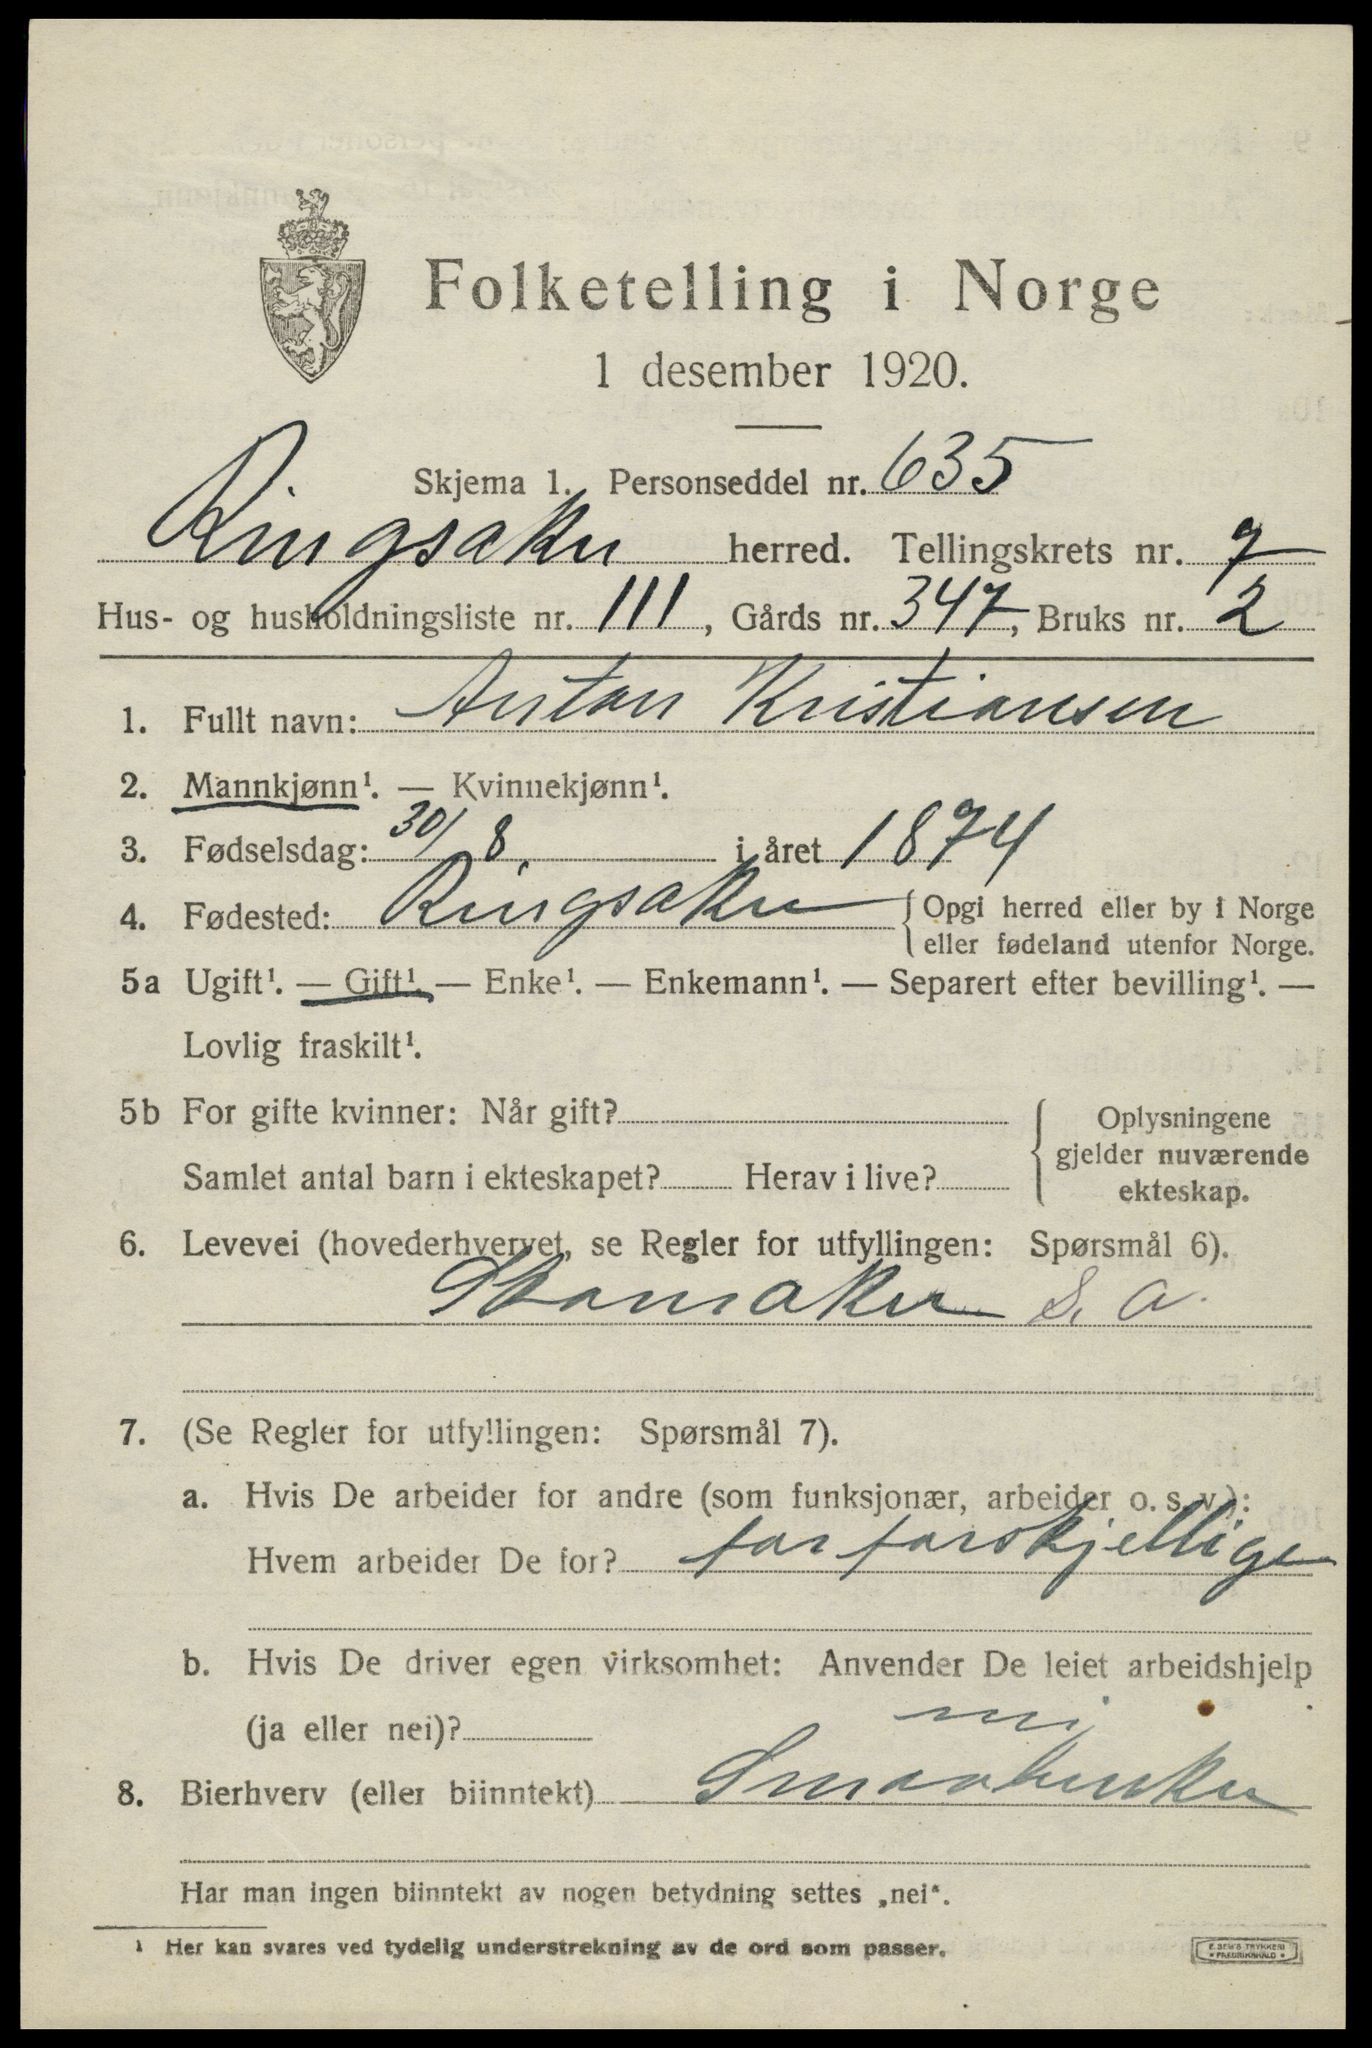 Folketelling i Norge
1 desember 1920.
Skjema 1. Personseddel nr. 635
Ringsaker herred. Tellingskrets nr. 9
Hus- og husholdningsliste nr. 111, Gårds nr. 347, Bruks nr. 2
1. Fullt navn: Anton Kristiansen
2. Mannkjønn¹. — Kvinnekjønn¹.
3. Fødselsdag: 30/8. i året 1874
4. Fødested: Ringsaker {Opgi herred eller by i Norge
eller fødeland utenfor Norge.
5a Ugift¹. — Gift¹. — Enke¹. — Enkemann¹. — Separert efter bevilling¹. —
Lovlig fraskilt¹.
5b For gifte kvinner: Når gift? Oplysningene
gjelder nuværende
Samlet antal barn i ekteskapet? Herav i live?
ekteskap.
6. Levevei (hovederhvervet, se Regler for utfyllingen: Spørsmål 6).
Skomaker S. a.
7. (Se Regler for utfyllingen: Spørsmål 7).
a. Hvis De arbeider for andre (som funksjonær, arbeider o. s. v.):
Hvem arbeider De for? for forskjellige
b. Hvis De driver egen virksomhet: Anvender De leiet arbeidshjelp
(ja eller nei)? nei
8. Bierhverv (eller biinntekt) Smaabruker
Har man ingen biinntekt av nogen betydning settes „nei“.
¹ Her kan svares ved tydelig understrekning av de ord som passer.
E. SEM'S TRYKKERI
FREDRIKSHALD